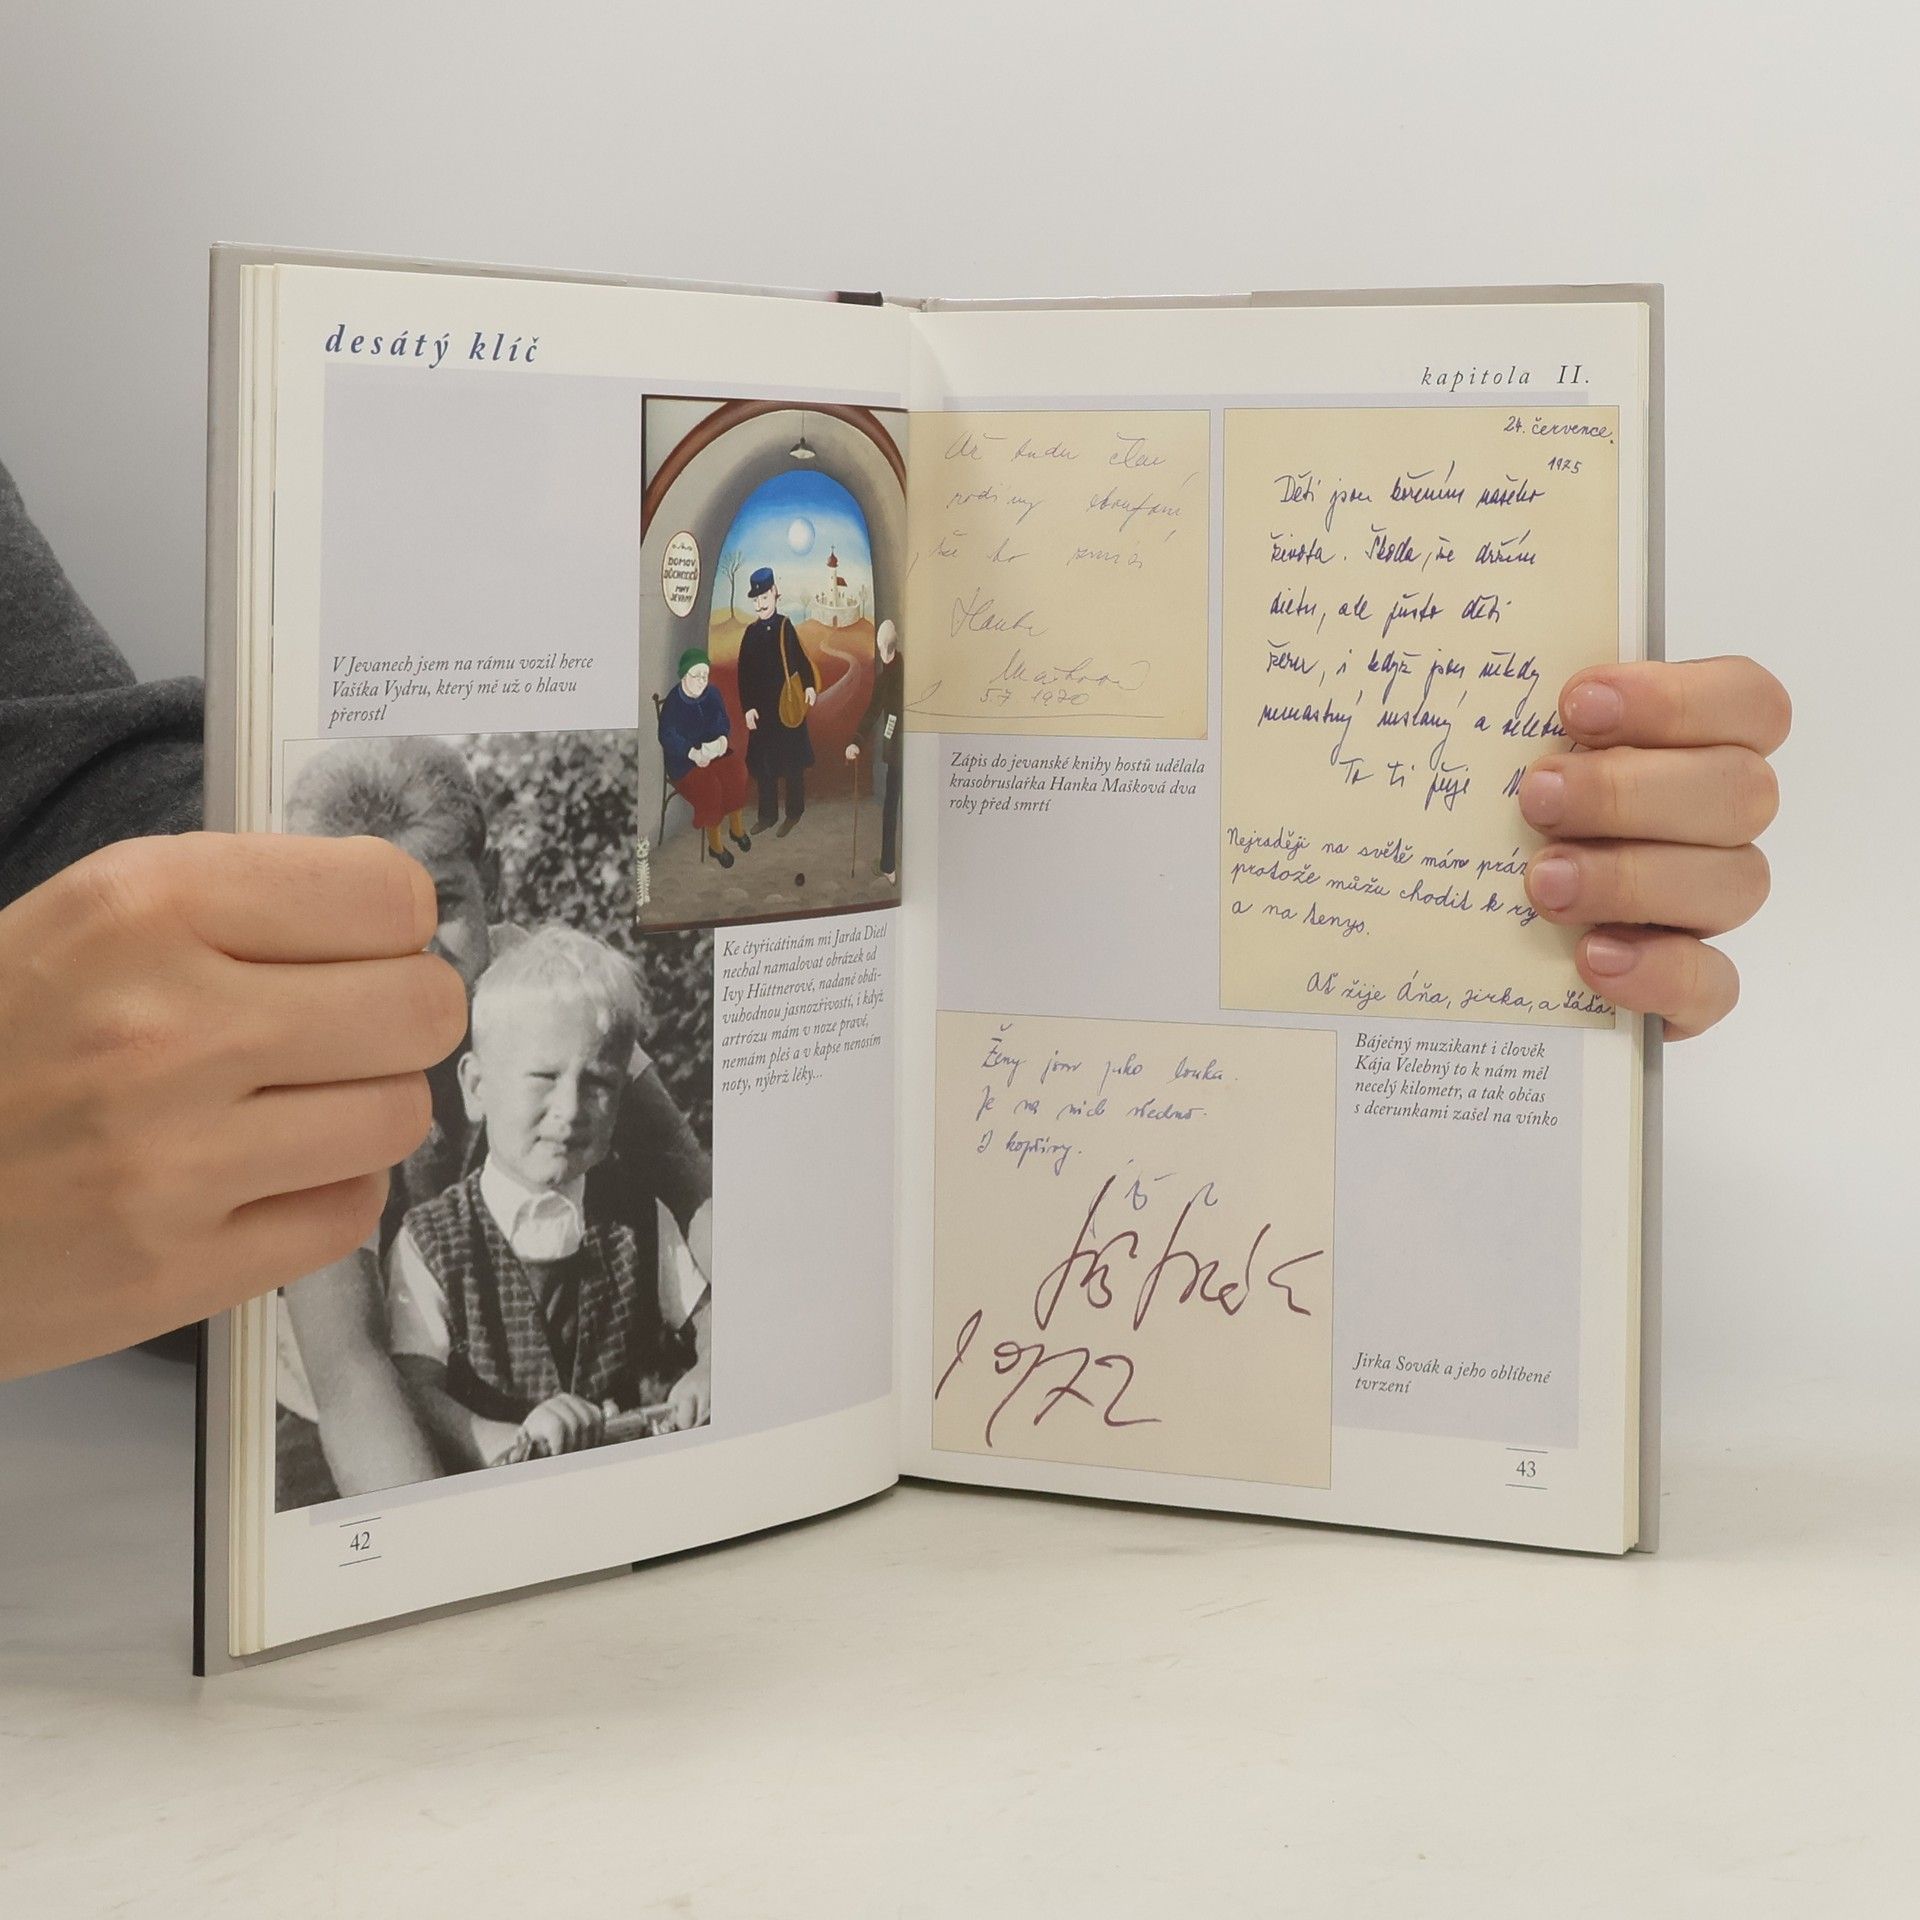 desátý klíč
V Jevanech jsem na rámu vozil herce
Vašíka Vydru, který mě už o hlavu
přerostl
DOMOV
DŮCHODCŮ
JEVANY
Ke čtyřicátinám mi Jarda Dietl
nechal namalovat obrázek od
Ivy Hüttnerové, nadané obdi-
vuhodnou jasnozřivostí, i když
artrózu mám v noze pravé,
nemám pleš a v kapse nenosím
noty, nýbrž léky...
42
kapitola II.
Až budu
rodiny
že ho
Hanka
Mašková
5.7 1970
Zápis do jevanské knihy hostů udělala
krasobruslařka Hanka Mašková dva
roky před smrtí
24. července.
1975
Děti jsou kořením našeho
života. Škoda, že držím
dietu, ale jísto děti
žeru, i když jsou někdy
nemastný neslaný a
To ti
Nejraději na světě mám
protože můžu chodit k
a na tenys.
Ať žije Áňa, jirka, a Láďa.
Báječný muzikant i člověk
Kája Velebný to k nám měl
necelý kilometr, a tak občas
s dcerunkami zašel na vínko
Ženy jsou jako louka.
Je na nich všechno.
I kopřivy.
1972
Jirka Sovák a jeho oblíbené
tvrzení
43